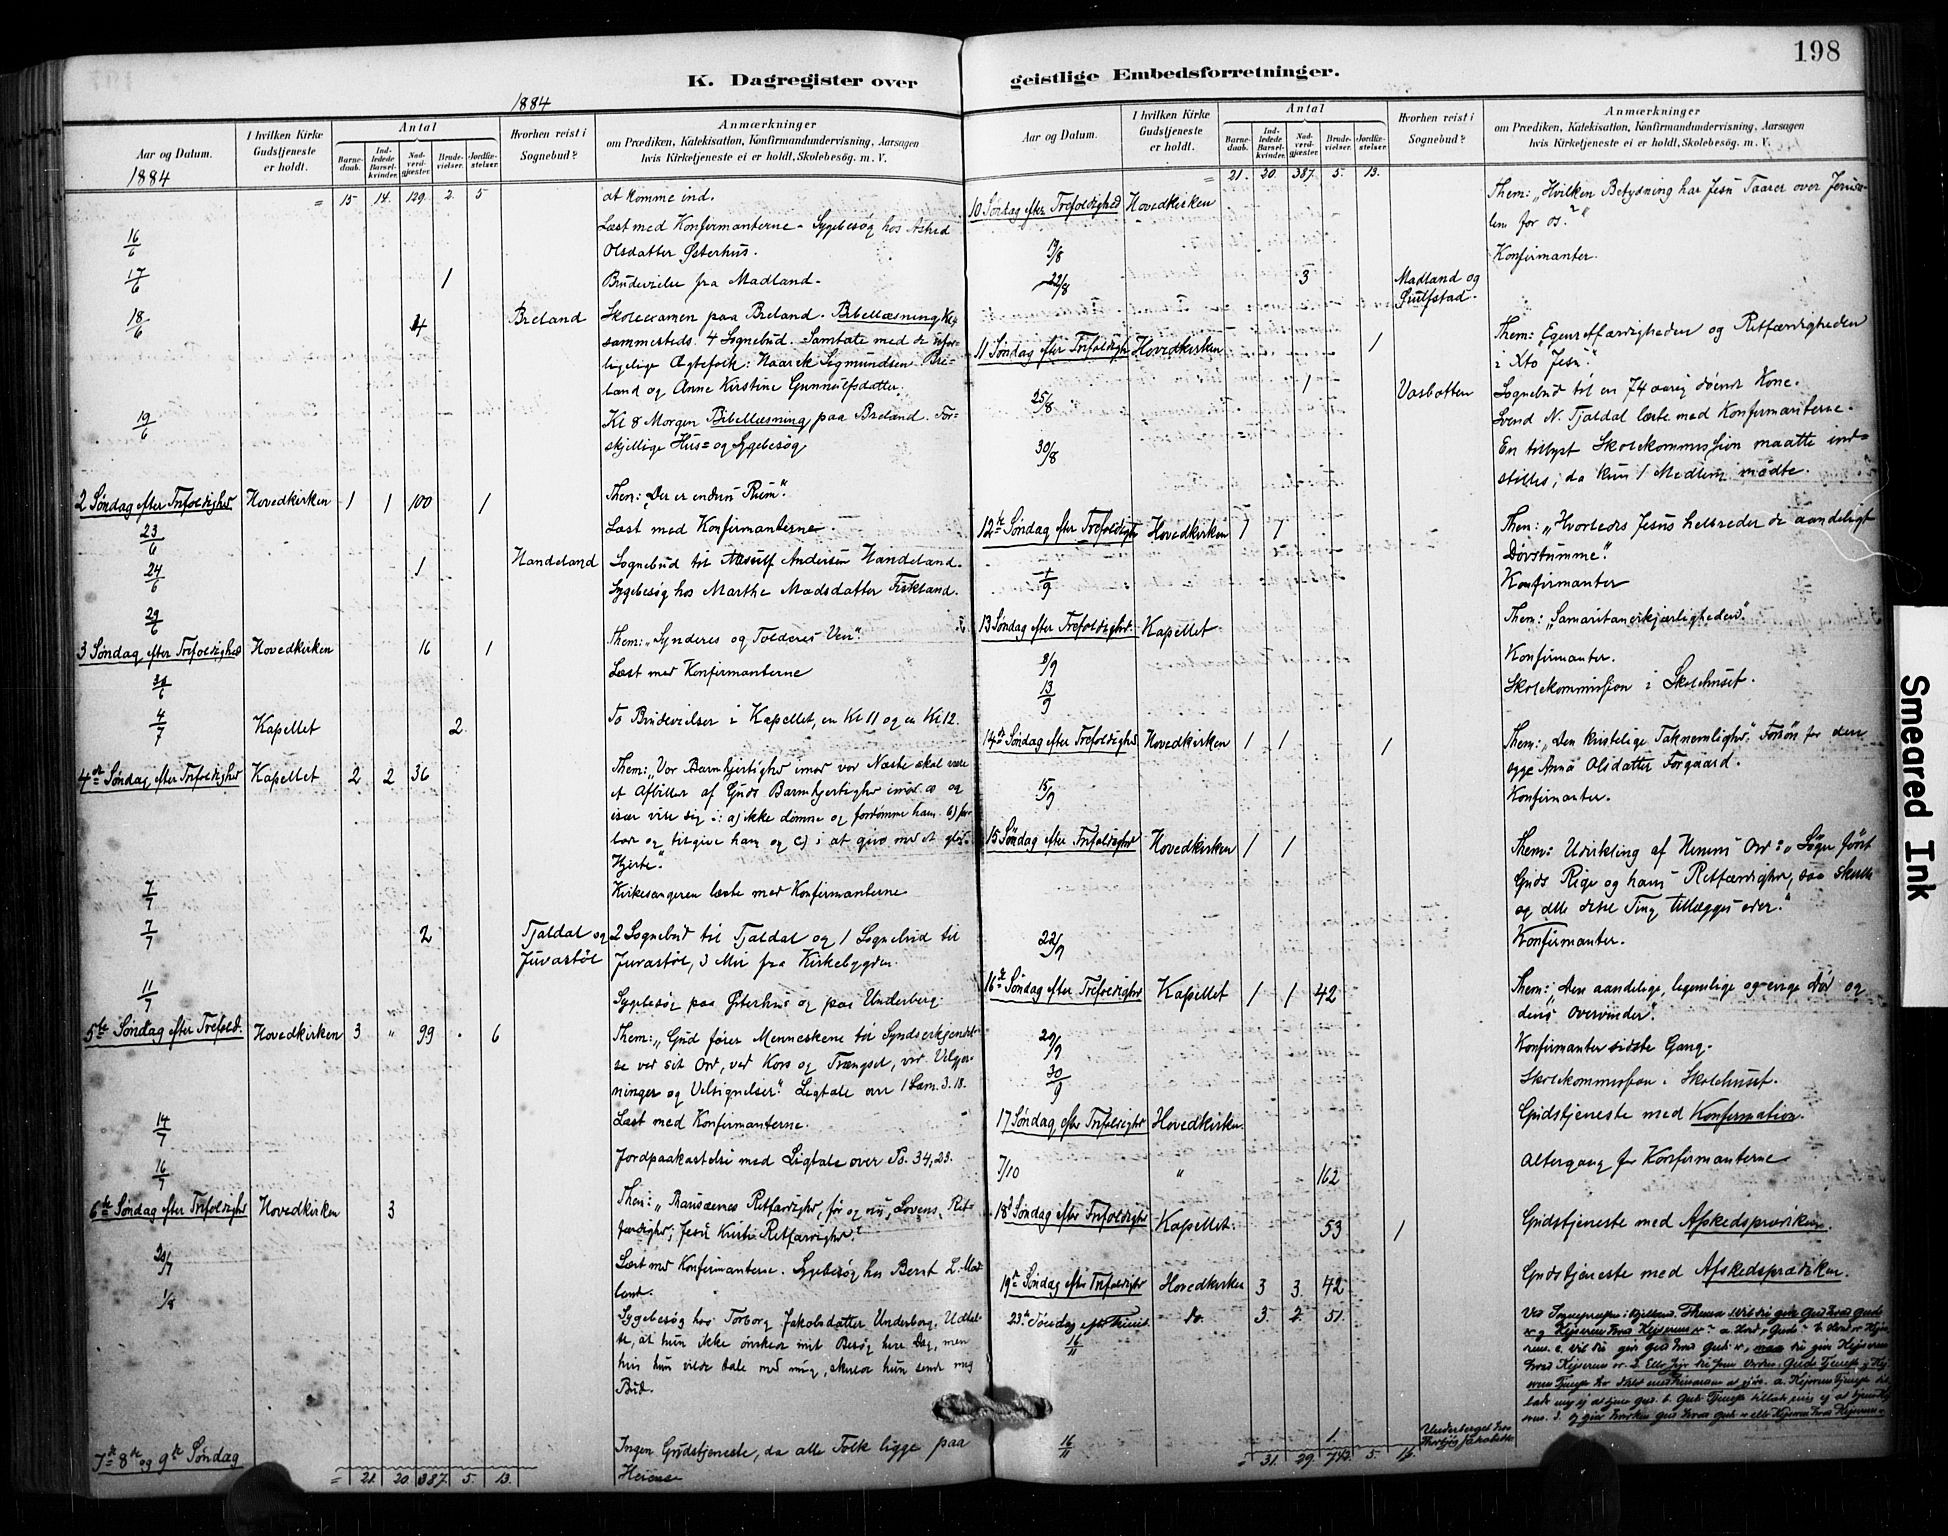 198
K. Dagregister over
geistlige Embedsforretninger.
1884
Aar og Datum.
1884
I hvilken Kirke
Gudstjeneste
er holdt.
Antal
Barne-
daab.
Ind-
ledede
Barsel-
kvinder.
Nad-
verd-
gjæster.
Brude-
vielser.
Jordfæ-
stelser.
Hvorhen reist i
Sognebud?
Anmærkninger
om Prædiken, Katekisation, Konfirmandundervisning, Aarsagen
hvis Kirketjeneste ei er holdt, Skolebesøg. m. V.
= 15 14. 129. 2. 5 at komme ind.
16/6 Læst med Konfirmanterne - Sygebesøg hos Astrid
Olsdatter Østerhus.
17/6 1 Brudevielse fra Madland.
18/6 4 Breland Skoleexamen paa Breland. Bibellæsning
sammesteds. 4 Sognebud. Samtale med de
Ægtefolk: Naarek Sigmundsen Bre-
land og Anne Kirstine Gunnulfsdatter.
19/6 Kl 8 Morgen Bibellæsning paa Breland. For-
skjellige Hus= og Sygebesøg
2 Søndag efter Trefoldighed Hovedkirken 1 1 100 1 Them: "Der er endnu Rum".
23/6 Læst med Konfirmanterne.
24/6 1 Handeland Sognebud til Assulf Andersen Handeland.
29/6 Sygebesøg hos Marthe Madsdatter Fiskland.
3 Søndag efter Trefoldighed Hovedkirken 16 1 Them: "Synderes og Tolderes Ven".
30/6 Læst med Konfirmanterne
4/7 Kapellet 2 To Brudevielser i Kapellet, en Kl 11 og en Kl 12.
4de Søndag efter Trefoldighed Kapellet 2 2 36 Them: "Vor Barmhjertighed imod vor Næste skal være
et Afbillede af Guds Barmhjertighed imod os og
især vise sig i: a) ikke dømme og fordømme ham. b) for-
lade og tilgive ham og c) i at give med et glad
Hjerte".
7/7 Kirkesangeren læste med Konfirmanterne
7/7 2 Tjaldal og 2 Sognebud til Tjaldal og 1 Sognebud til
Juvastøl Juvastøl, 3 Mil fra Kirkebygden.
11/7 Sygebesøg paa Østerhus og paa Underberg.
5te Søndag efter Trefold. Hovedkirken 3 " 99 . 6 Them: "Gud fører Menneskene til Syndserkjendel-
se ved sit Ord, ved Kors og Trængsel, ved Velgjer-
ninger og Velsignelser". Ligtale over 1 Sam. 3.18.
14/7 Læst med Konfirmanterne.
16/7 Jordpaakastelse med Ligtale over Ps. 34,23.
6te Søndag efter Trefoldighed Hovedkirken 3 Them: "Farisæernes Retfærdighed, før og nu, Lovens Ret-
færdighed; Jesu Kristi Retfærdighed"
Læst med Konfirmanterne. Sygebesøg hos Berst L. Mad-
land.
1/8 Sygebesøg hos Torborg Jakobsdatter Underberg. Udtal-
te, at hun ikke ønskede mit Besøg hver Dag, men
hvis hun vilde tale med mig, skulde hun sende mig
Bud.
7de 8de og 9de Søndag Ingen Gudstjeneste, da alle Folk ligge paa
= 21. 20. 387. 5. 13. Heierne
Aar og Datum.
I hvilken Kirke
Gudstjeneste
er holdt.
Antal
Barne-
daab.
Ind-
ledede
Barsel-
kvinder.
Nad-
verd-
gjæster.
Brude-
vielser.
Jordfæ-
stelser.
Hvorhen reist i
Sognebud?
Anmærkninger
om Prædiken, Katekisation, Konfirmandundervisning, Aarsagen
hvis Kirketjeneste ei er holdt, Skolebesøg. m. V.
= 21. 20. 387. 5. 13.
10 Søndag efter Trefoldighed Hovedkirken Them: "Hvilken Betydning har Jesu Taarer over Jerusa-
lem for os?"
19/8 Konfirmanter.
22/8 3 Madland og
11 Søndag efter Trefoldigh. Hovedkirken 1 Them: "Egenretfærdigheden og Retfærdigheden
i Xto Jesu".
25/8 1 Vasbotten Sognebud til en 74 aarig døende Kone.
Svend N. Tjaldal læste med Konfirmanterne.
30/8 En tillyst Skolekommission maatte ind-
stilles, da kun 1 Medlem mødte.
12te Søndag efter Trefoldighed Hovedkirken 1 1 Them: "Hvorledes Jesus helbreder de aandeligt
Døvstumme".
1/9 Konfirmanter
13 Søndag efter Trefoldighed Kapellet Them: "Samaritanerkjærligheden".
8/9 Konfirmanter.
13/9 Skolekommission i Skolehuset.
14de Søndag efter Trefoldighed Hovedkirken 1 1 1 Them: "Den kristelige Taknemlighed". Forbøn for den
syge Anna Olsdatter Forgaard.
15/9 Konfirmanter.
15 Søndag efter Trefoldighed Hovedkirken 1 1 Them: Udvikling af Herrens Ord: "Søger først
Guds Rige og hans Retfærdighed, saa skulle
og alle disse Ting tillægges eder."
22/9 Konfirmanter.
16de Søndag efter Trefoldighed Kapellet 1 1 42 Them: "Den aandelige, legemlige og evige Død og
dens Overvinder".
29/9 Konfirmanter sidste Gang.
30/9 Skolekommission i Skolehuset.
17 Søndag efter Trefoldighed Hovedkirken. Gudstjeneste med Konfirmation.
7/10 " 162 Altergang for Konfirmanterne
18de Søndag efter Trefoldighed Kapellet. 53 1 Gudstjeneste med Afskedspræken.
19de Søndag efter Trefoldighed Hovedkirken 3 3. 42 Gudstjeneste med Afskedsprædiken.
23de Søndag efter Trinit. do. 3. 2. 51.
16/11
16/11 1. Underberget hos
= 31. 29. 742. 5. 15.
Smeared Ink